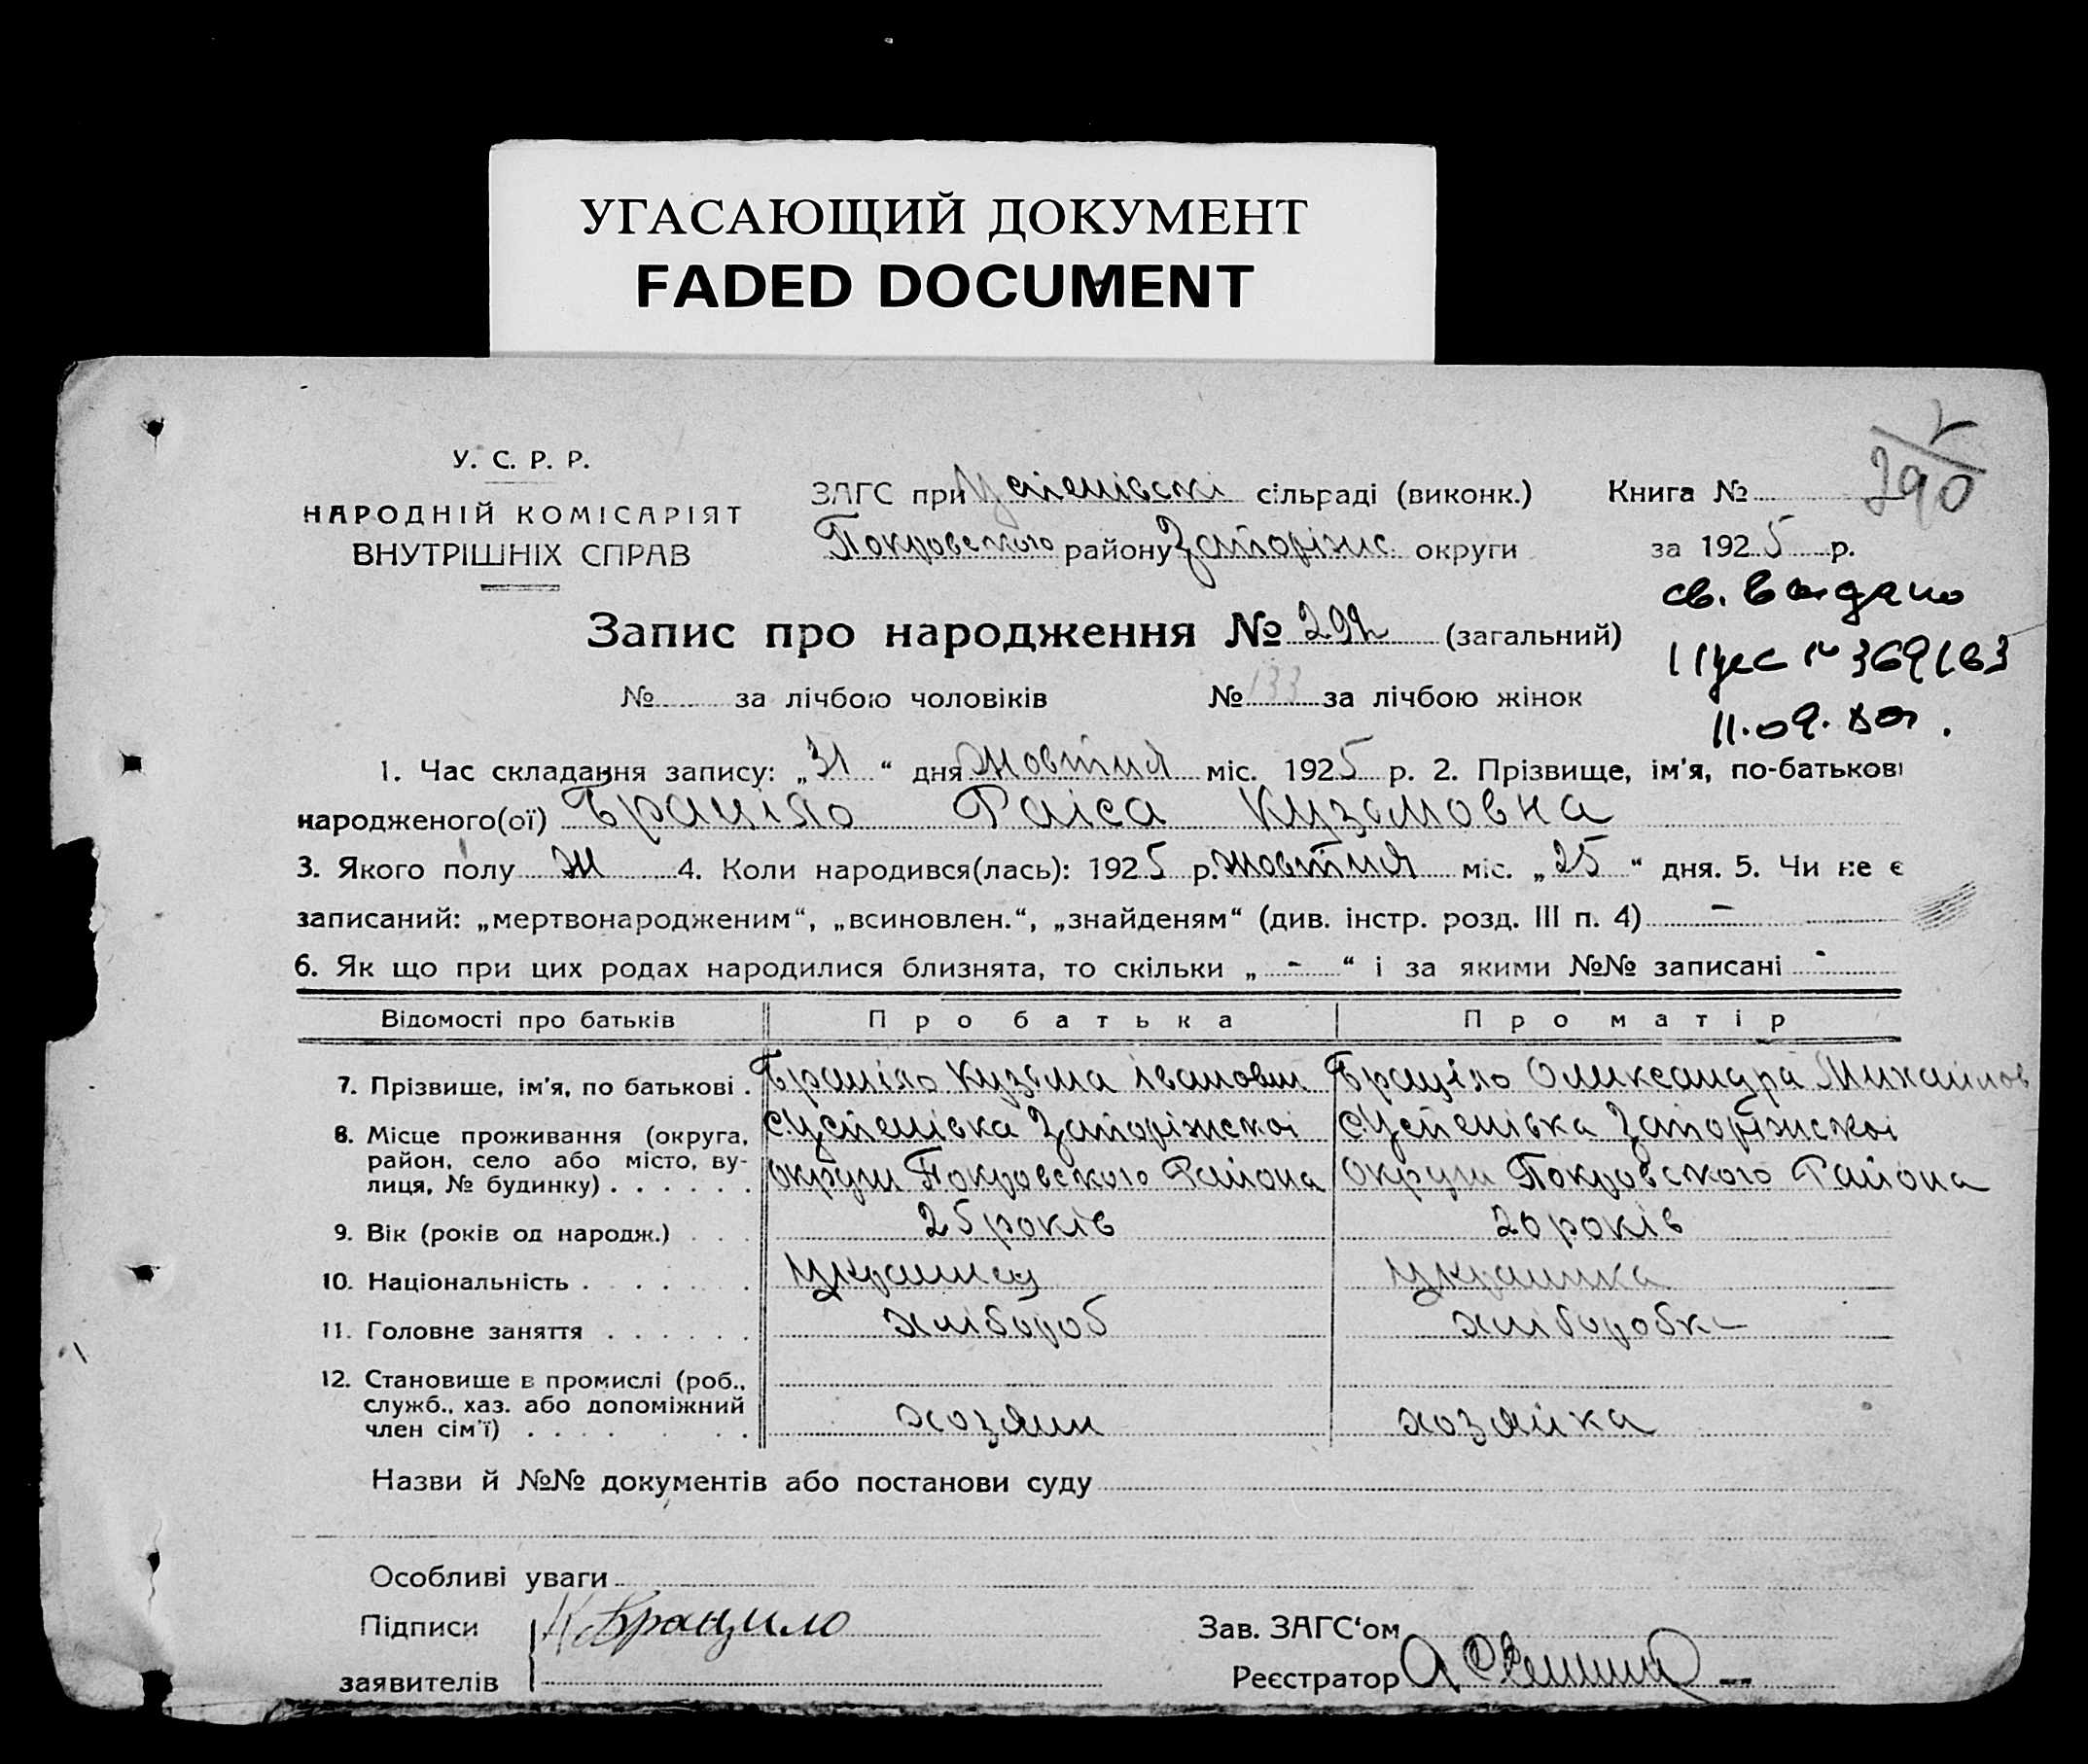 УГАСАЮЩИЙ ДОКУМЕНТ
FADED DOCUMENT
У. С. Р. Р.
НАРОДНІЙ КОМІСАРІЯТ
ВНУТРІШНІХ СПРАВ
ЗАГС при Успенівскі сільраді (виконк.)
Покровского району Запоріжс. округи
Книга №
290
за 1925 р.
св. выдано
369163
11.09.
Запис про народження № 292 (загальний)
№ за лічбою чоловіків № 133 за лічбою жінок
1. Час складання запису: „31“ дня Жовтня міс. 1925 р. 2. Прізвище, ім'я, по-батькові
народженого(ої) Браціло Раіса Кузьмовна
3. Якого полу ж 4. Коли народився(лась): 1925 р. жовтня міс. „25“ дня. 5. Чи не є
записаний: „мертвонародженим“, „всиновлен.“, „знайденям“ (див. інстр. розд. III п. 4) –
6. Як що при цих родах народилися близнята, то скільки „ - “ і за якими №№ записані -
Відомості про батьків Про батька Про матір
7. Прізвище, ім'я, по батькові . Браціло Кузьма Іванович Браціло Олександра Михайлов
8. Місце проживання (округа, район, село або місто, вулиця, № будинку) . . . . . .
с Успенівка Запоріжскоі округи Покровского Района
с Успенівка Запоріжскоі округи Покровского Района
9. Вік (років од народж.) . . . 25 років 20 років
10. Національність . . . . . . Украинец Украинка
11. Головне заняття . . . . . . хлібороб хліборобка
12. Становище в промислі (роб., служб., хаз. або допоміжний член сім'ї) . . . . . . хозяин хозяйка
Назви й №№ документів або постанови суду
Особливі уваги
Підписи К Брацило
заявителів
Зав. ЗАГС'ом
Реєстратор